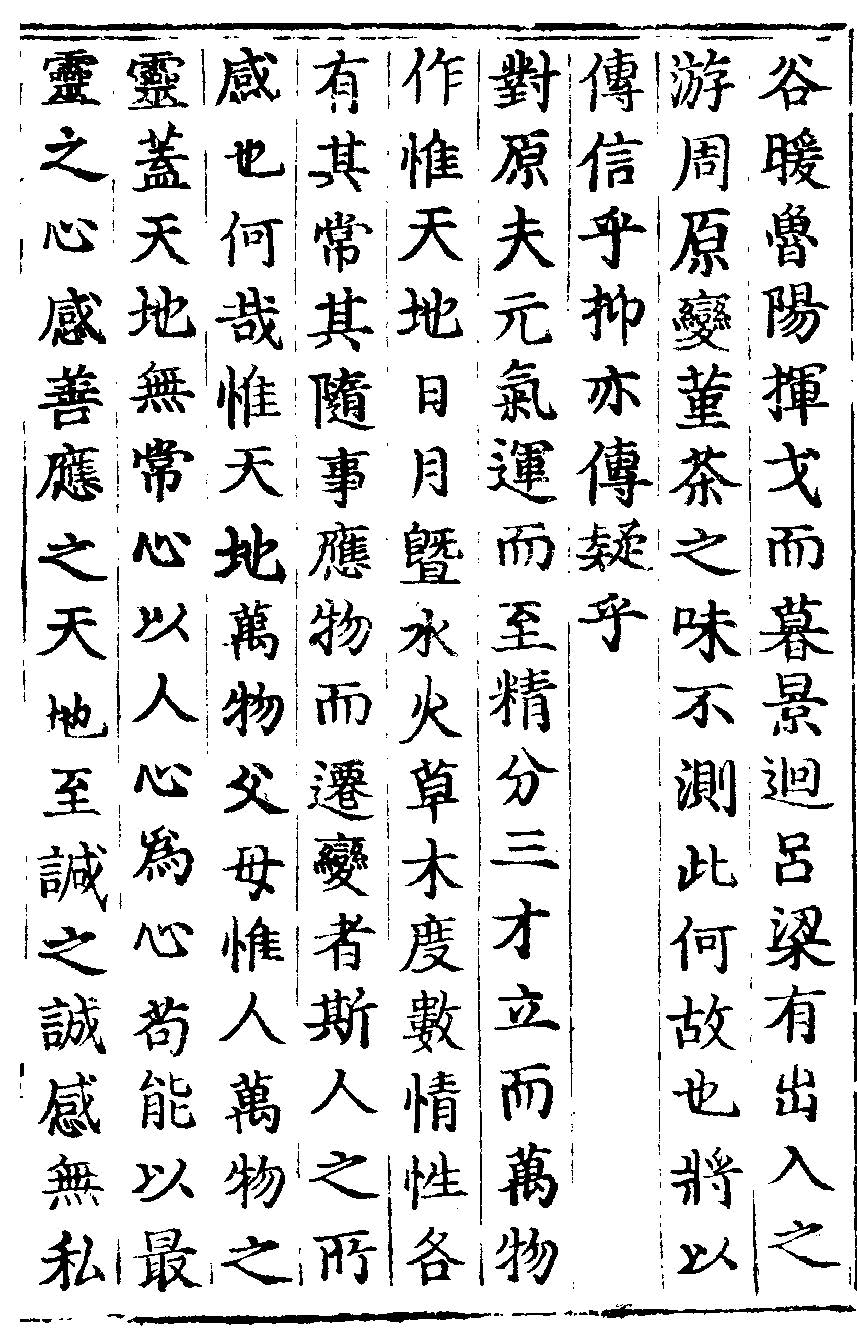 谷暖魯陽揮戈而暮景迴呂梁有出入之
游周原變菫荼之味不測此何故也將以
傳信乎抑亦傳疑乎
對原夫元氣運而至精分三才立而萬物
作惟天地日月曁水火草木度數情性各
有其常其隨事應物而遷變者斯人之所
感也何哉惟天地萬物父母惟人萬物之
靈蓋天地無常心以人心爲心苟能以最
靈之心感善應之天地至諴之誠感無私